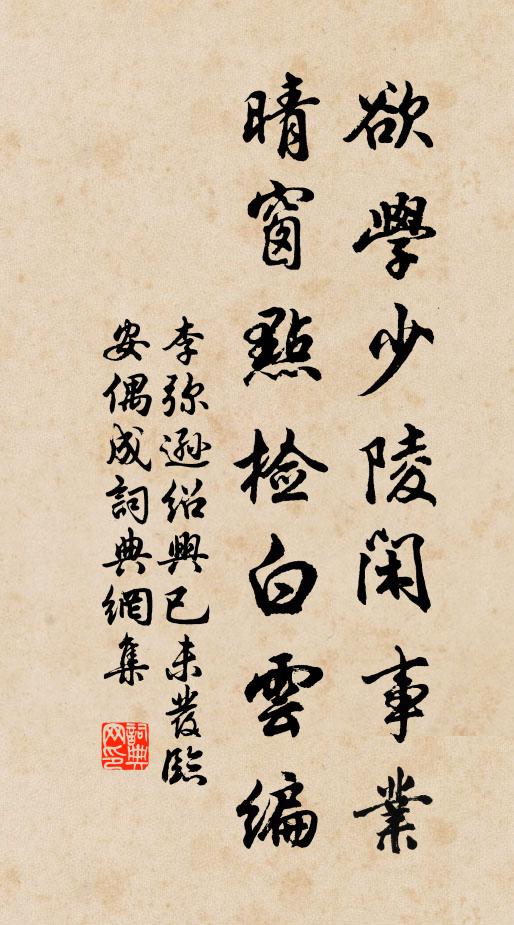 欲學少陵閑事業
晴窗點檢白雲編
李弥遜紹興己未發臨
安偶成詞典網集
詞典网印